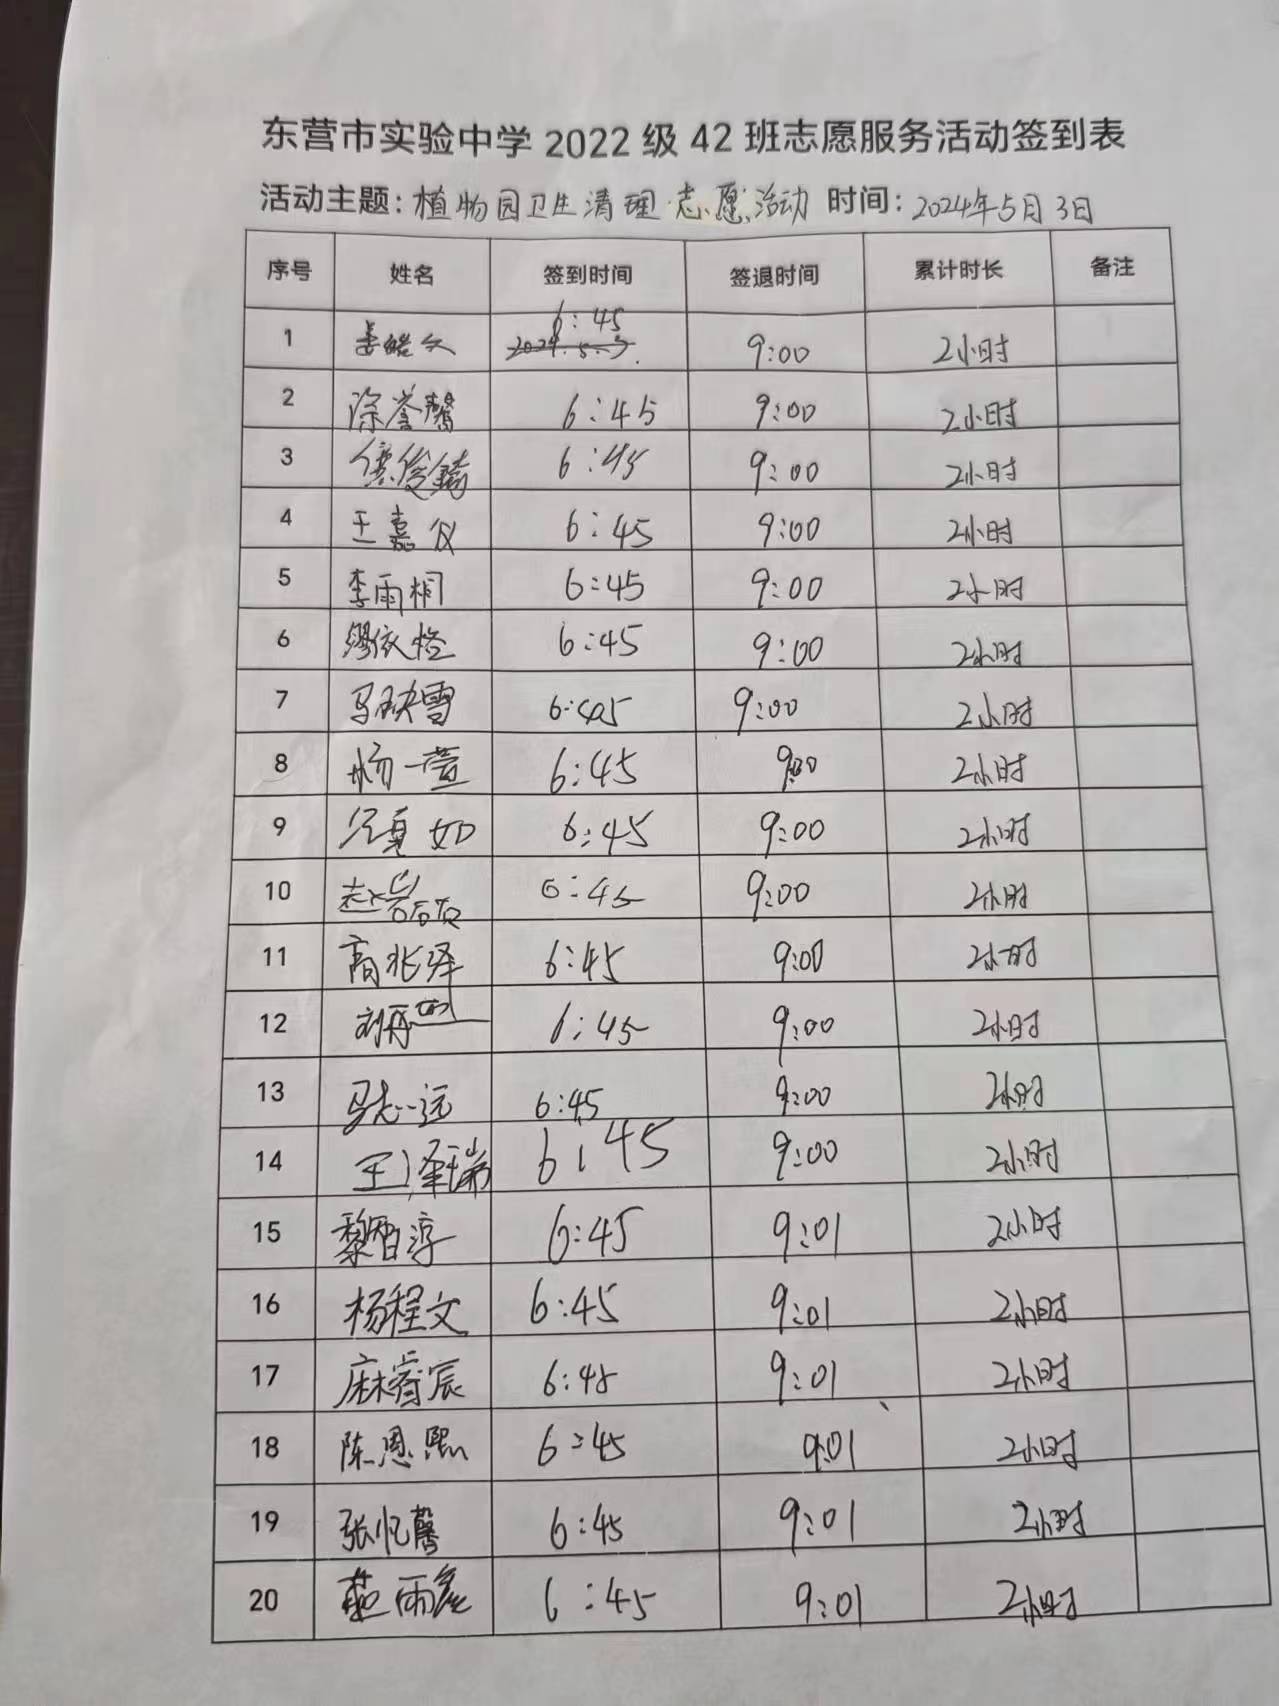 东营市实验中学 2022 级 42 班志愿服务活动签到表
活动主题：植物园卫生清理志愿活动 时间：2024年5月3日
序号 姓名 签到时间 签退时间 累计时长 备注
1 6:45 2024.5.3. 9:00 2小时
2 涂誉馨 6:45 9:00 2小时
3 俊 6:45 9:00 2小时
4 王嘉仪 6:45 9:00 2小时
5 李雨桐 6:45 9:00 2小时
6 缪依恬 6:45 9:00 2小时
7 马映雪 6:45 9:00 2小时
8 杨一萱 6:45 9:00 2小时
9 如 6:45 9:00 2小时
10 赵 6:45 9:00 2小时
11 高兆泽 6:45 9:00 2小时
12 刘 6:45 9:00 2小时
13 马志远 6:45 9:00 2小时
14 王泽瑞 6:45 9:00 2小时
15 黎智淳 6:45 9:01 2小时
16 杨程文 6:45 9:01 2小时
17 麻睿宸 6:45 9:01 2小时
18 陈恩熙 6:45 9:01 2小时
19 张忆馨 6:45 9:01 2小时
20 雨 6:45 9:01 2小时